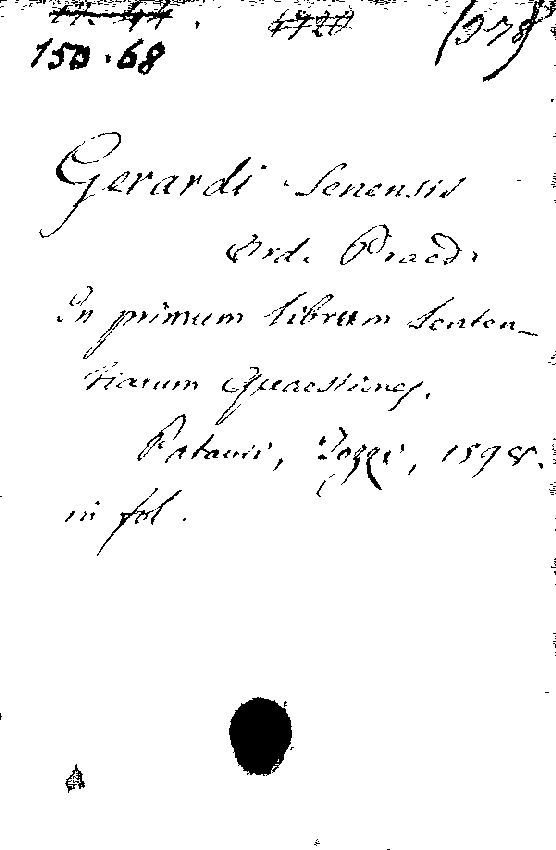 150.68
(978)
Gerardi Senensis
Ord. Praed.
In primum librum Senten-
tiarum Quaestiones.
Patavii, 1598.
in fol.